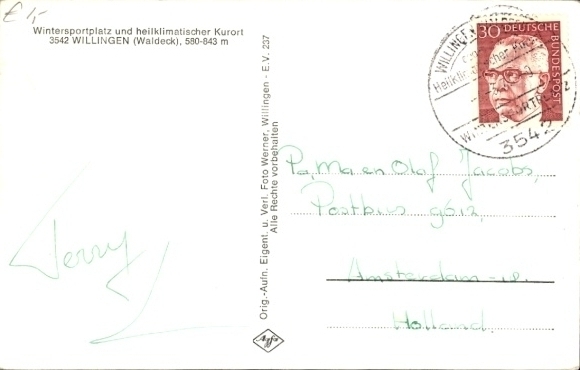 € 15
Wintersportplatz und heilklimatischer Kurort
3542 WILLINGEN (Waldeck), 580-843 m
Jerry
Orig.-Aufn. Eigent. u. Verl. Foto Werner, Willingen - E.V. 237
Alle Rechte vorbehalten
Agfa
30 DEUTSCHE
BUNDESPOST
WILLINGEN
Heilklimatischer Kurort
WINTERSPORTPLATZ
3542
Pa, Ma en Olof Jacobs,
Postbus 9612,
Amsterdam
Holland.